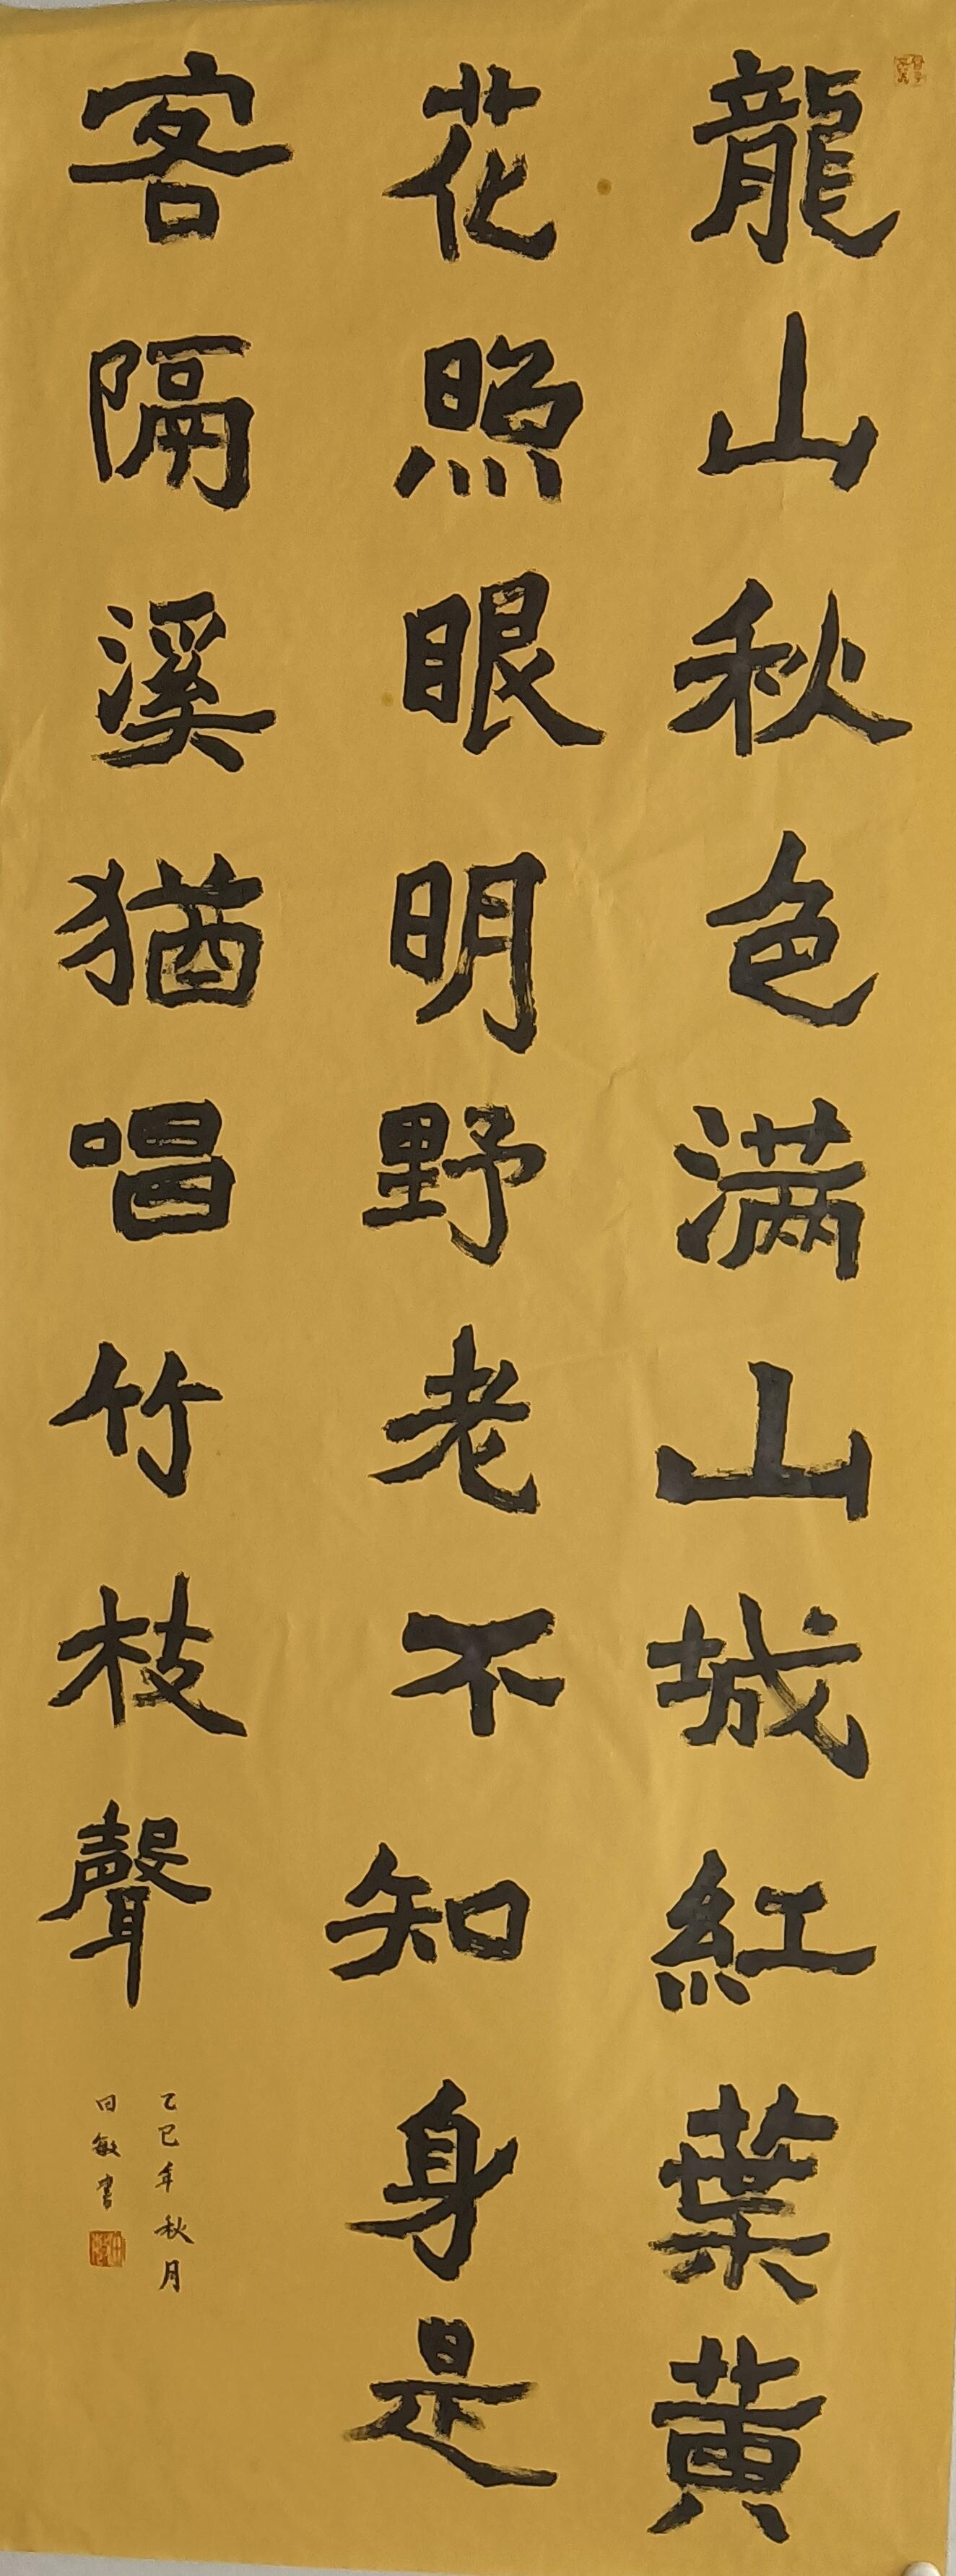 龍山秋色满山城紅葉黄
花照眼明野老不知身是
客隔溪猶唱竹枝聲
乙巳年秋月
日敏書